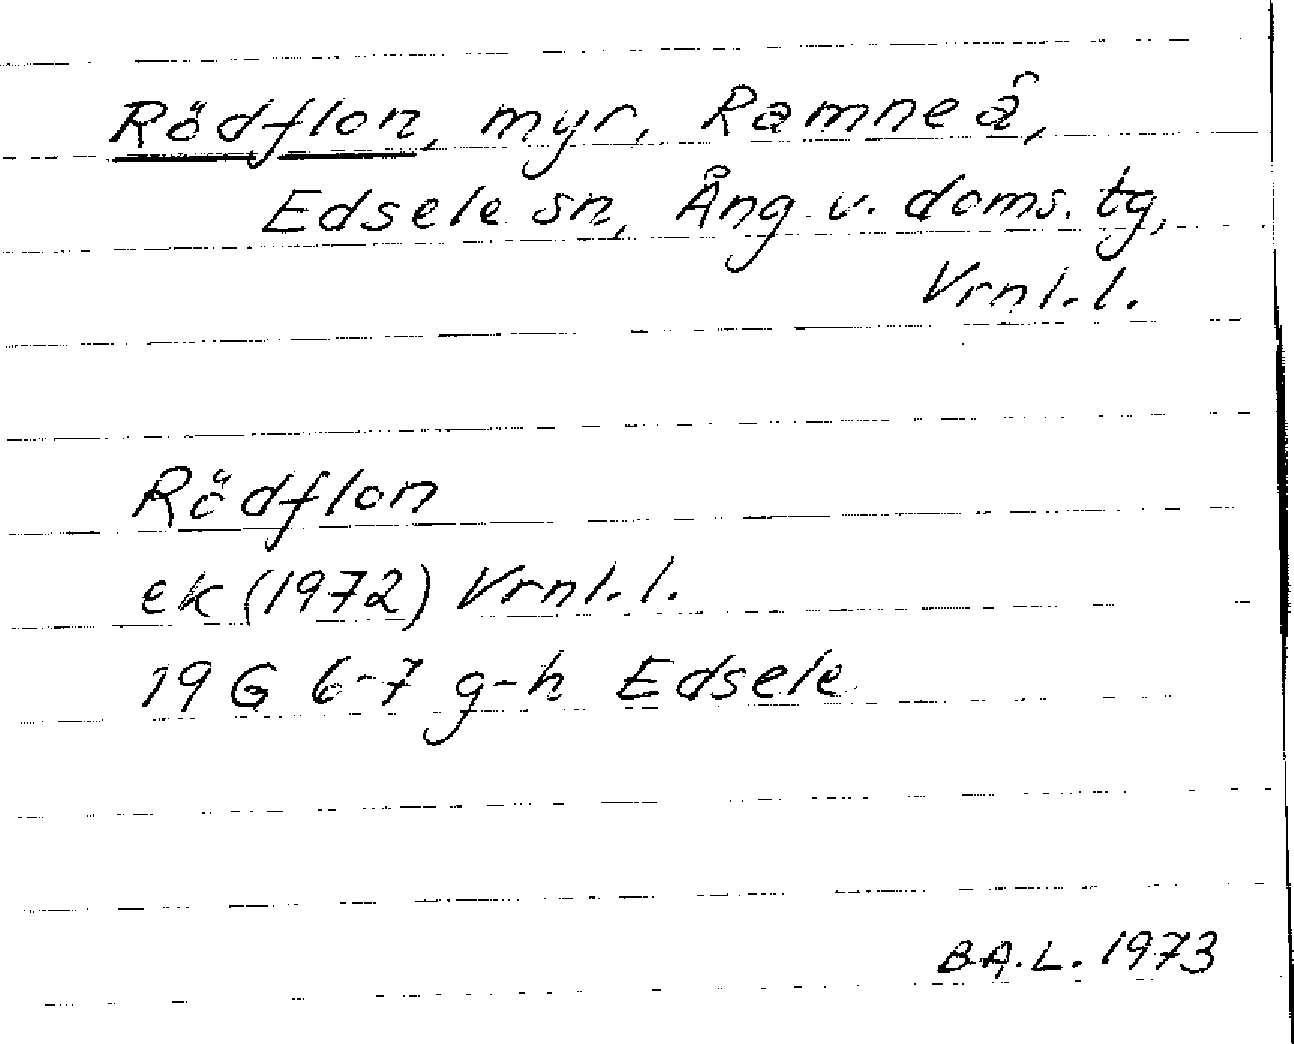 Rödflon, myr, Ramneå,
Edsele sn, Ång v. doms. tg,
Vrnl.l.
Rödflon
ek (1972) Vrnl.l.
19 G 6-7 g-h Edsele
B.A.L. 1973